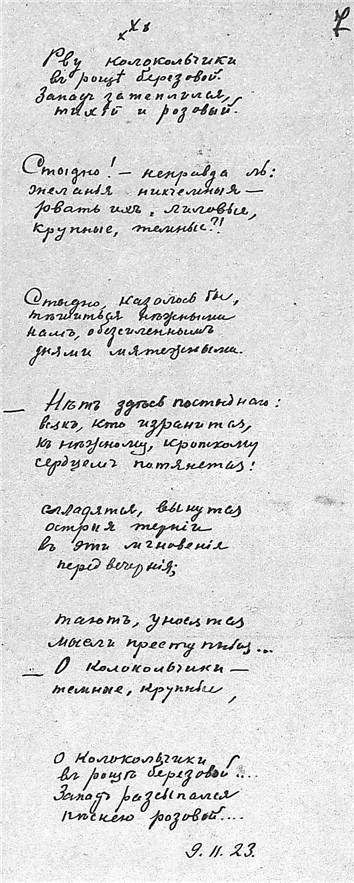 хXх
7
Рву колокольчики
въ рощѣ березовой.
Западъ затеплился,
тихій и розовый.
Стыдно! — неправда ль:
желанья никчемныя —
рвать ихъ, лиловые,
крупные, темные?!
Стыдно, казалось бы,
тѣшиться нѣжными
намъ, обезсиленнымъ
днями мятежными.
— Нѣтъ здѣсь постыднаго:
всякъ, кто изранится,
къ нѣжному, кроткому
сердцемъ потянется:
сгладятся, вынутся
острия терній
въ эти мгновенія
предвечернія;
таютъ, уносятся
мысли преступныя...
— О колокольчики —
темные, крупные,
О колокольчики
въ рощѣ березовой....
Западъ разсыпался
пѣснею розовой....
9. II. 23.